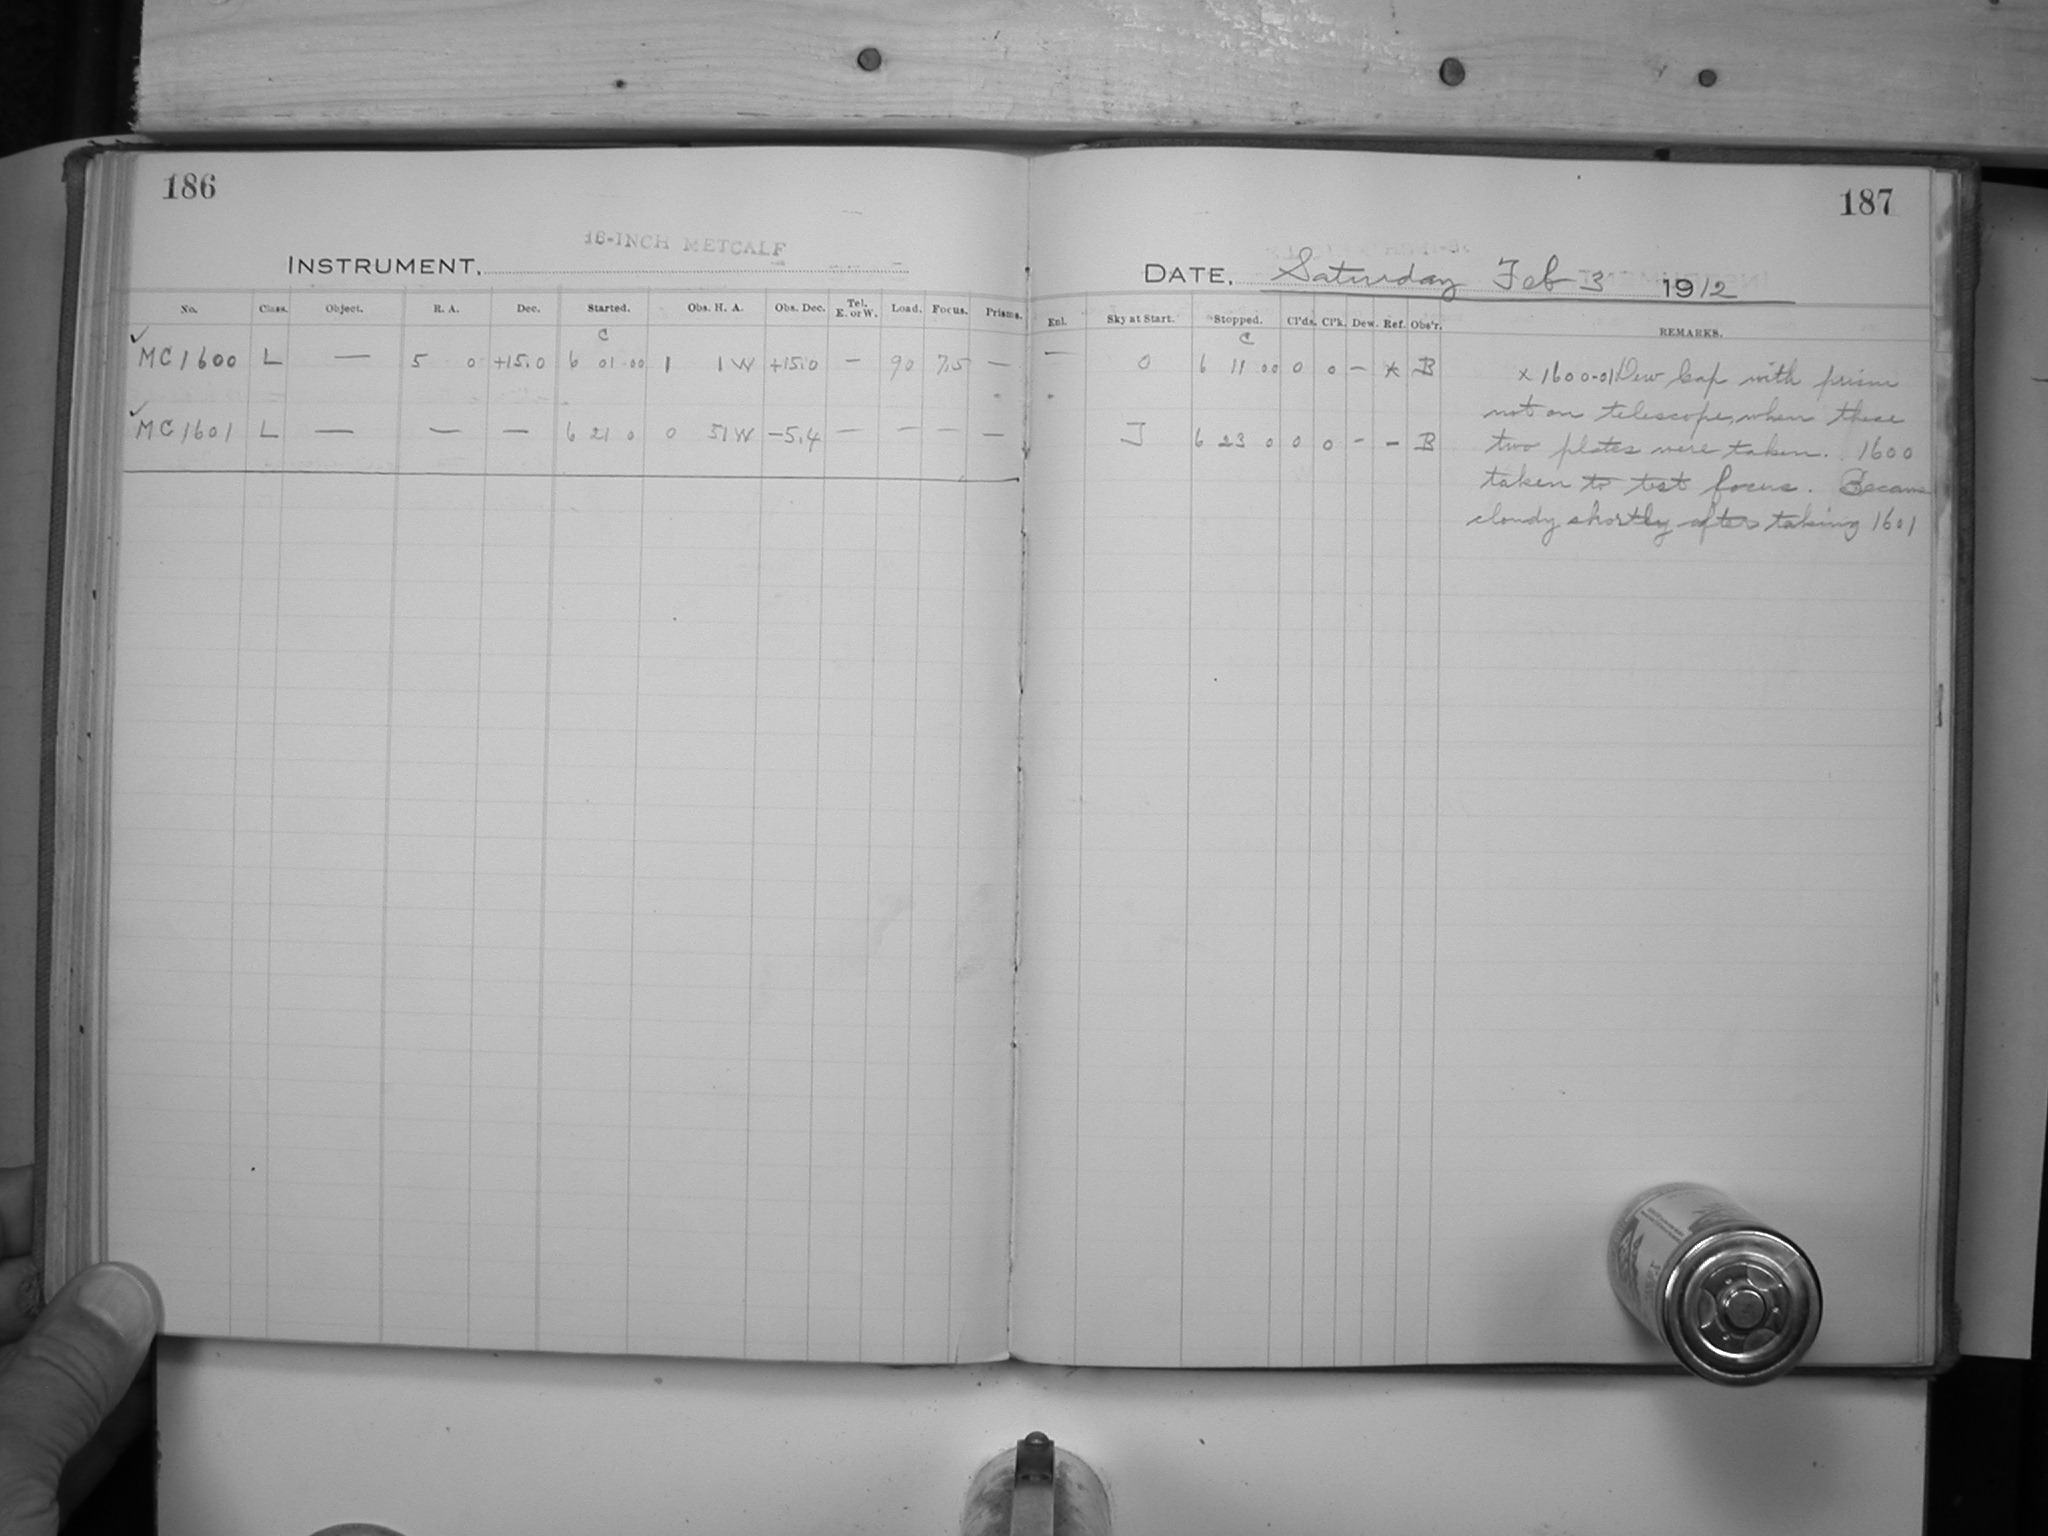 186
16-INCH METCALF
INSTRUMENT,
No. Class. Object. R. A. Dec. Started. Obs. H. A. Obs. Dec. Tel. E. or W. Load. Focus. Prisms.
C
✓
MC1600 L — 5 0 +15.0 6 01 00 1 1 W +15.0 — 90 7.5 —
✓
MC1601 L — — — 6 21 0 0 51 W -5.4 — — — —
187
DATE, Saturday Feb 3 1912
Enl. Sky at Start. Stopped. Cl'ds. Cl'k. Dew. Ref. Obs'r. REMARKS.
C
— 0 6 11 00 0 0 — * B
J 6 23 0 0 0 - - B
x 1600-01 Dew Cap with prism
not on telescope, when these
two plates were taken. 1600
taken to test focus. Became
cloudy shortly after taking 1601